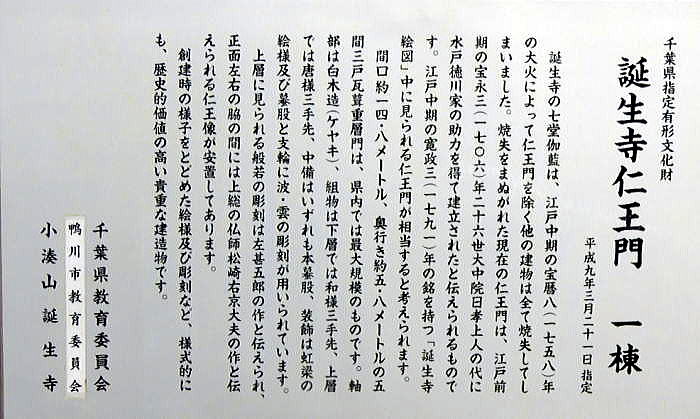 千葉県指定有形文化財
誕生寺仁王門　一棟
平成九年三月二十一日 指定
誕生寺の七堂伽藍は、江戸中期の宝暦八(一七五八)年
の大火によって仁王門を除く他の建物は全て焼失してし
まいました。焼失をまぬがれた現在の仁王門は、江戸前
期の宝永三(一七〇六)年二十六世大中院日孝上人の代に
水戸徳川家の助力を得て建立されたと伝えられるもので
す。江戸中期の寛政三(一七九一)年の銘を持つ「誕生寺
絵図」中に見られる仁王門が相当すると考えられます。
間口約一四・八メートル、奥行き約五・八メートルの五
間三戸瓦葺重層門は、県内では最大規模のものです。軸
部は白木造(ケヤキ)、組物は下層では和様三手先、上層
では唐様三手先、中備はいずれも本蟇股、装飾は虹梁の
絵様及び蟇股と支輪に波・雲の彫刻が用いられています。
上層に見られる般若の彫刻は左甚五郎の作と伝えられ、
正面左右の脇の間には上総の仏師松崎右京大夫の作と伝
えられる仁王像が安置してあります。
創建時の様子をとどめた絵様及び彫刻など、様式的に
も、歴史的価値の高い貴重な建造物です。
千葉県教育委員会
鴨川市教育委員会
小湊山誕生寺